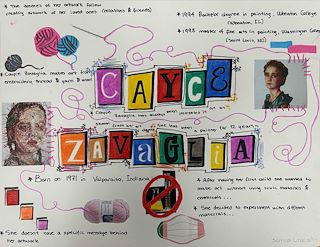 * The themes of her artwork follow
creating artwork of her loved ones (relatives & friends)
* 1994 Bachelor degree in painting, Wheaton College
(Wheaton, IL)
* 1998 master of fine arts in painting, Washington
(Saint Louis, MO)
* Cayce Zavaglia makes art
embroidery thread & yarn
CAYCE
* Cayce
always been interested in art
ZAVAGLIA
a painter for 12 years
* Born on 1971 in Valparaiso, Indiana
* After having her first child she wanted to
make art without using toxic materials &
chemicals...
* She decided to experiment with different
materials...
* She doesn't have a specific message behind
her artwork